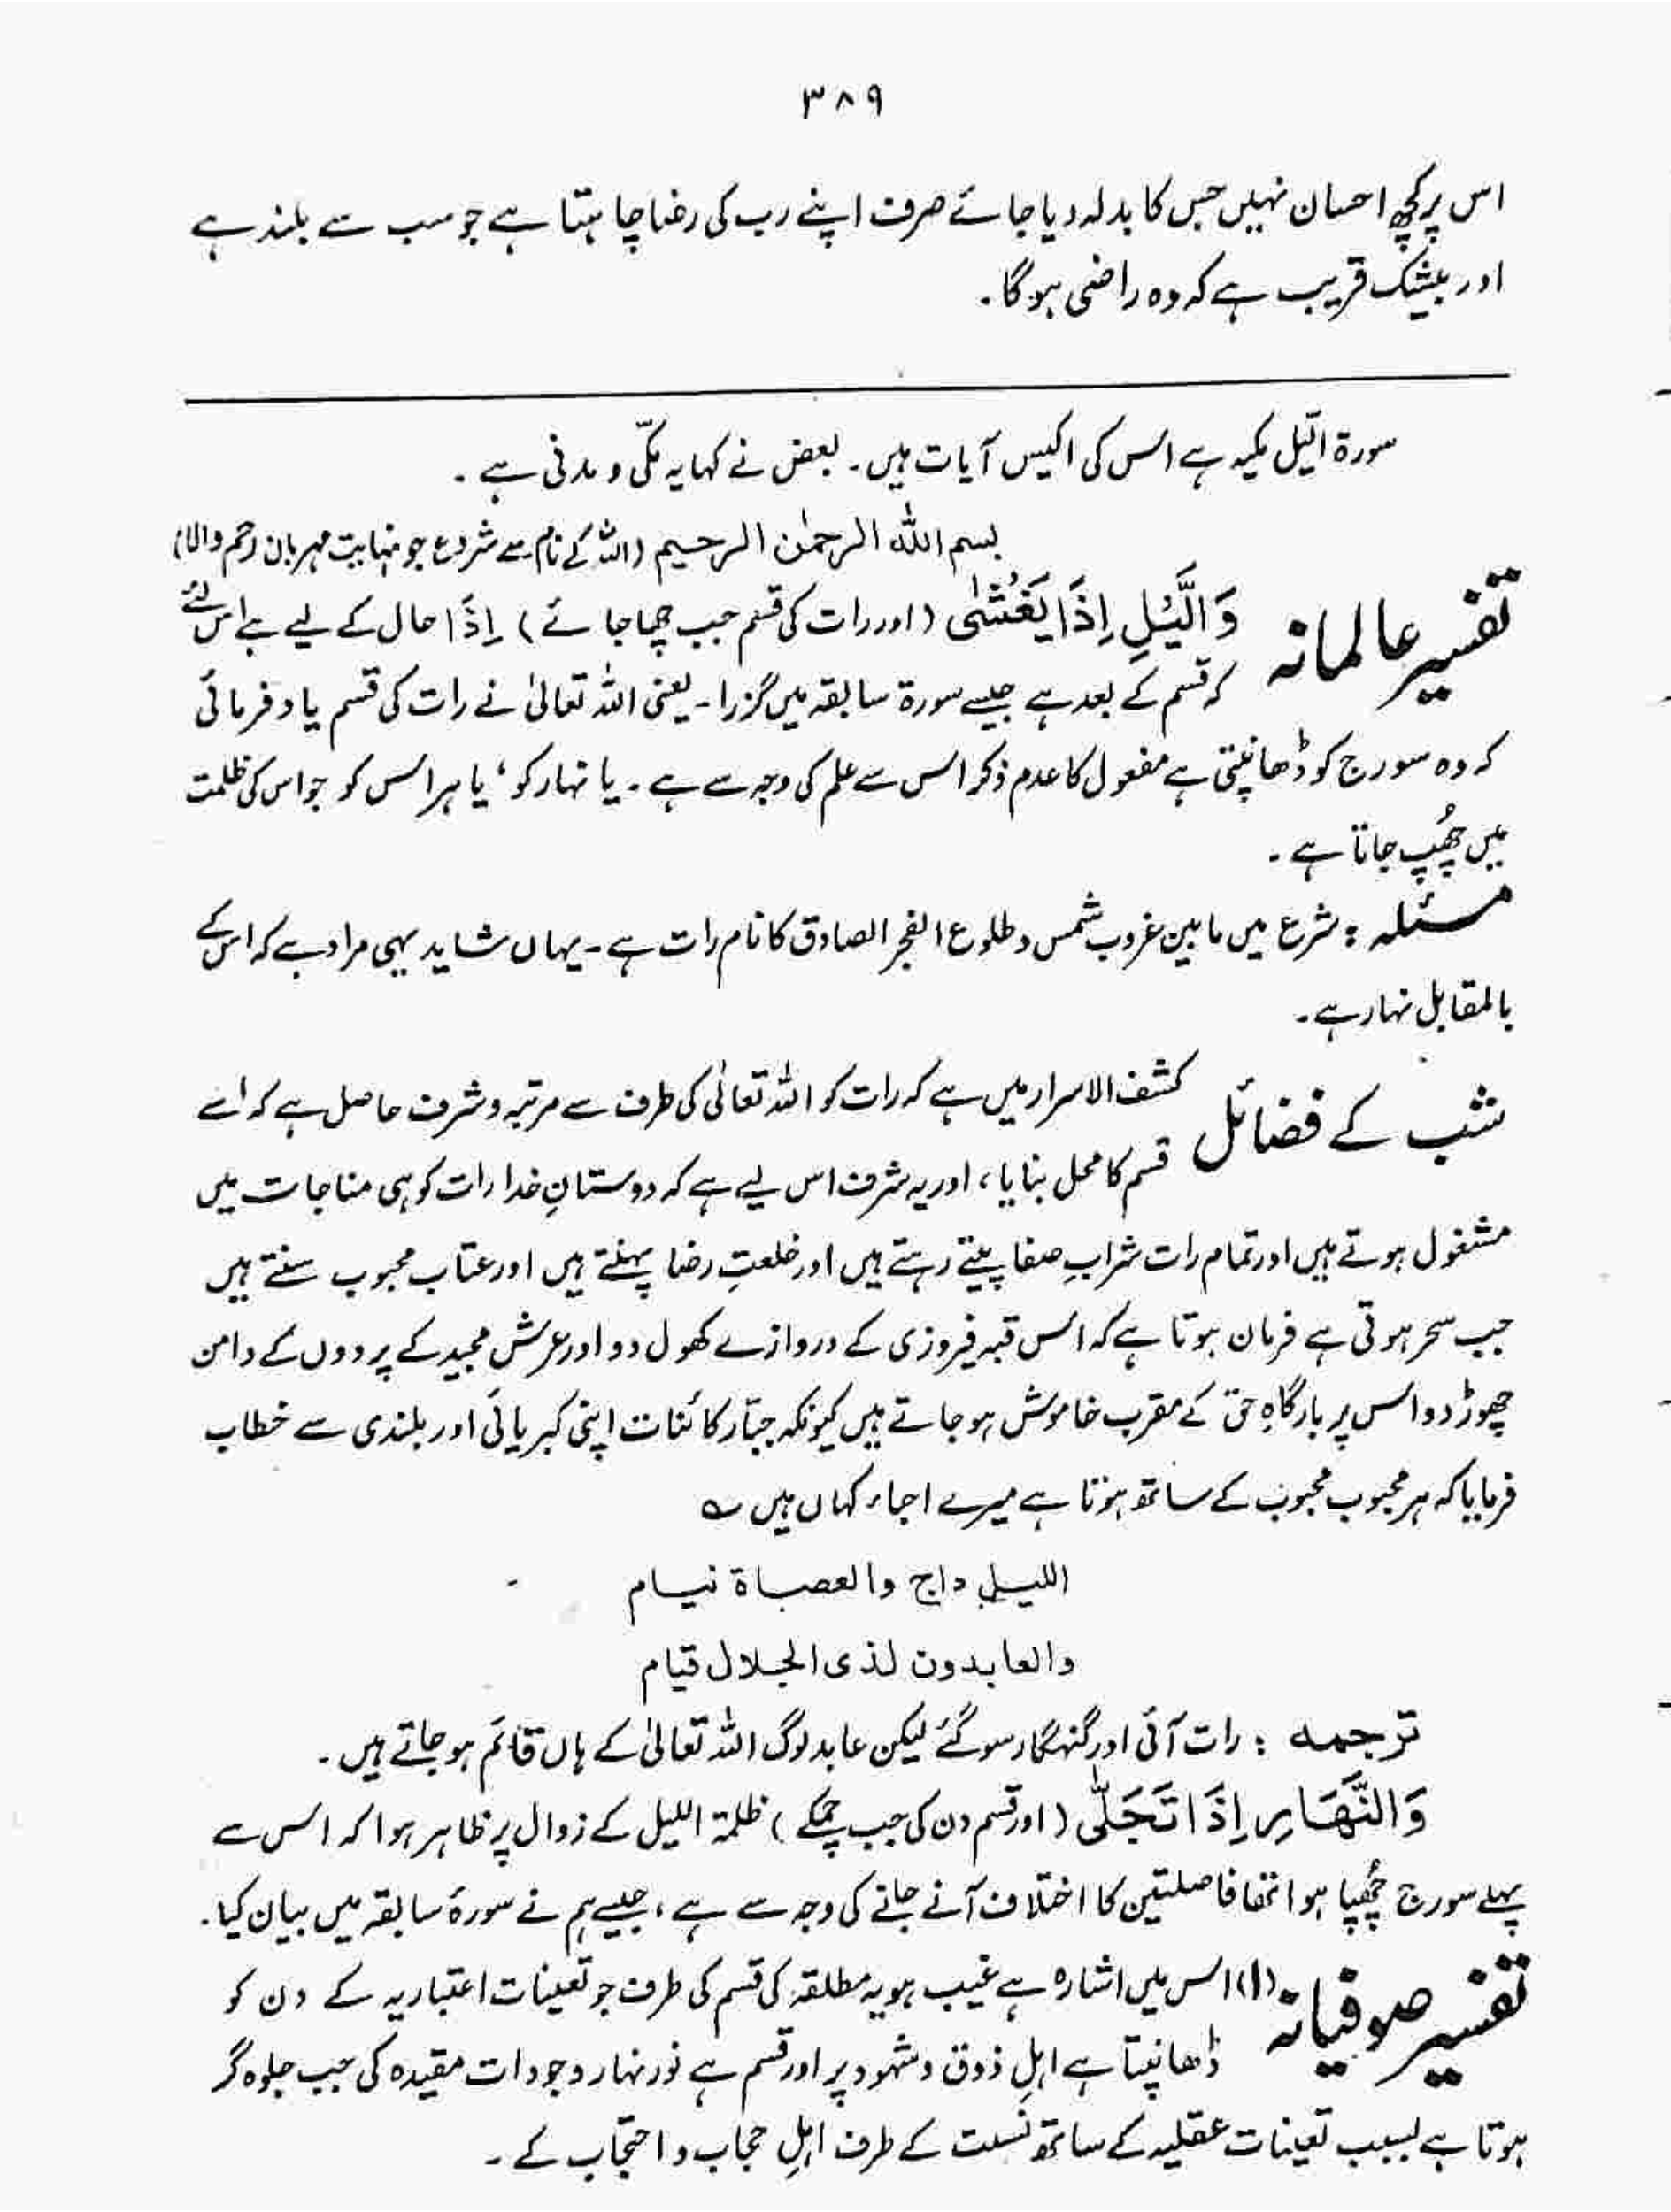 ٣٨٩
اس پر کچھ احسان نہیں جس کا بدلہ دیا جائے صرف اپنے رب کی رضا چاہتا ہے جو سب سے بلند ہے
اور بیشک قریب ہے کہ وہ راضی ہوگا۔
سورۃ الّیل مکیہ ہے اس کی اکیس آیات ہیں۔ بعض نے کہا یہ مکّی و مدنی ہے۔
بسم اللہ الرحمٰن الرحیم (اللہ کے نام سے شروع جو نہایت مہربان رحم والا)
تفسیر عالمانہ وَالَّیْلِ اِذَا یَغْشٰی (اور رات کی قسم جب چھا جائے) اِذَا حال کے لیے ہے اس لئے
کہ قسم کے بعد ہے جیسے سورۃ سابقہ میں گزرا۔ یعنی اللہ تعالیٰ نے رات کی قسم یاد فرمائی
کہ وہ سورج کو ڈھانپتی ہے مفعول کا عدم ذکر اس سے علم کی وجہ سے ہے۔ یا نہار کو، یا ہر اس کو جو اس کی ظلمت
میں چُھپ جاتا ہے۔
مسئلہ : شرع میں مابین غروب شمس و طلوع الفجر الصادق کا نام رات ہے۔ یہاں شاید یہی مراد ہے کہ اس کے
بالمقابل نہار ہے۔
شب کے فضائل کشف الاسرار میں ہے کہ رات کو اللہ تعالیٰ کی طرف سے مرتبہ و شرف حاصل ہے کہ اسے
قسم کا محل بنایا، اور یہ شرف اس لیے ہے کہ دوستانِ خدا رات کو ہی مناجات میں
مشغول ہوتے ہیں اور تمام رات شرابِ صفا پیتے رہتے ہیں اور خلعتِ رضا پہنتے ہیں اور عتاب محبوب سنتے ہیں
جب سحر ہوتی ہے فرمان ہوتا ہے کہ اس قبہ فیروزی کے دروازے کھول دو اور عرش مجید کے پردوں کے دامن
چھوڑ دو اس پر بارگاہِ حق کے مقرب خاموش ہو جاتے ہیں کیونکہ جبّار کائنات اپنی کبریائی اور بلندی سے خطاب
فرمایا کہ ہر محبوب محبوب کے ساتھ ہوتا ہے میرے احباء کہاں ہیں ؎
اللیل داج والعصاۃ نیام
والعابدون لذی الجلال قیام
ترجمہ : رات آئی اور گنہگار سو گئے لیکن عابد لوگ اللہ تعالیٰ کے ہاں قائم ہو جاتے ہیں۔
وَالنَّهَارِ اِذَا تَجَلّٰی (اور قسم دن کی جب چمکے) ظلمۃ اللیل کے زوال پر ظاہر ہوا کہ اس سے
پہلے سورج چُھپا ہوا تھا فاصلتین کا اختلاف آنے جانے کی وجہ سے ہے، جیسے ہم نے سورۂ سابقہ میں بیان کیا۔
تفسیر صوفیانہ (۱) اس میں اشارہ ہے غیب ہویہ مطلقہ کی قسم کی طرف جو تعینات اعتباریہ کے دن کو
ڈھانپتا ہے اہلِ ذوق و شہود پر اور قسم ہے نور نہار وجودات مقیدہ کی جب جلوہ گر
ہوتا ہے بسبب تعینات عقلیہ کے ساتھ نسبت کے طرف اہلِ حجاب و احتجاب کے۔